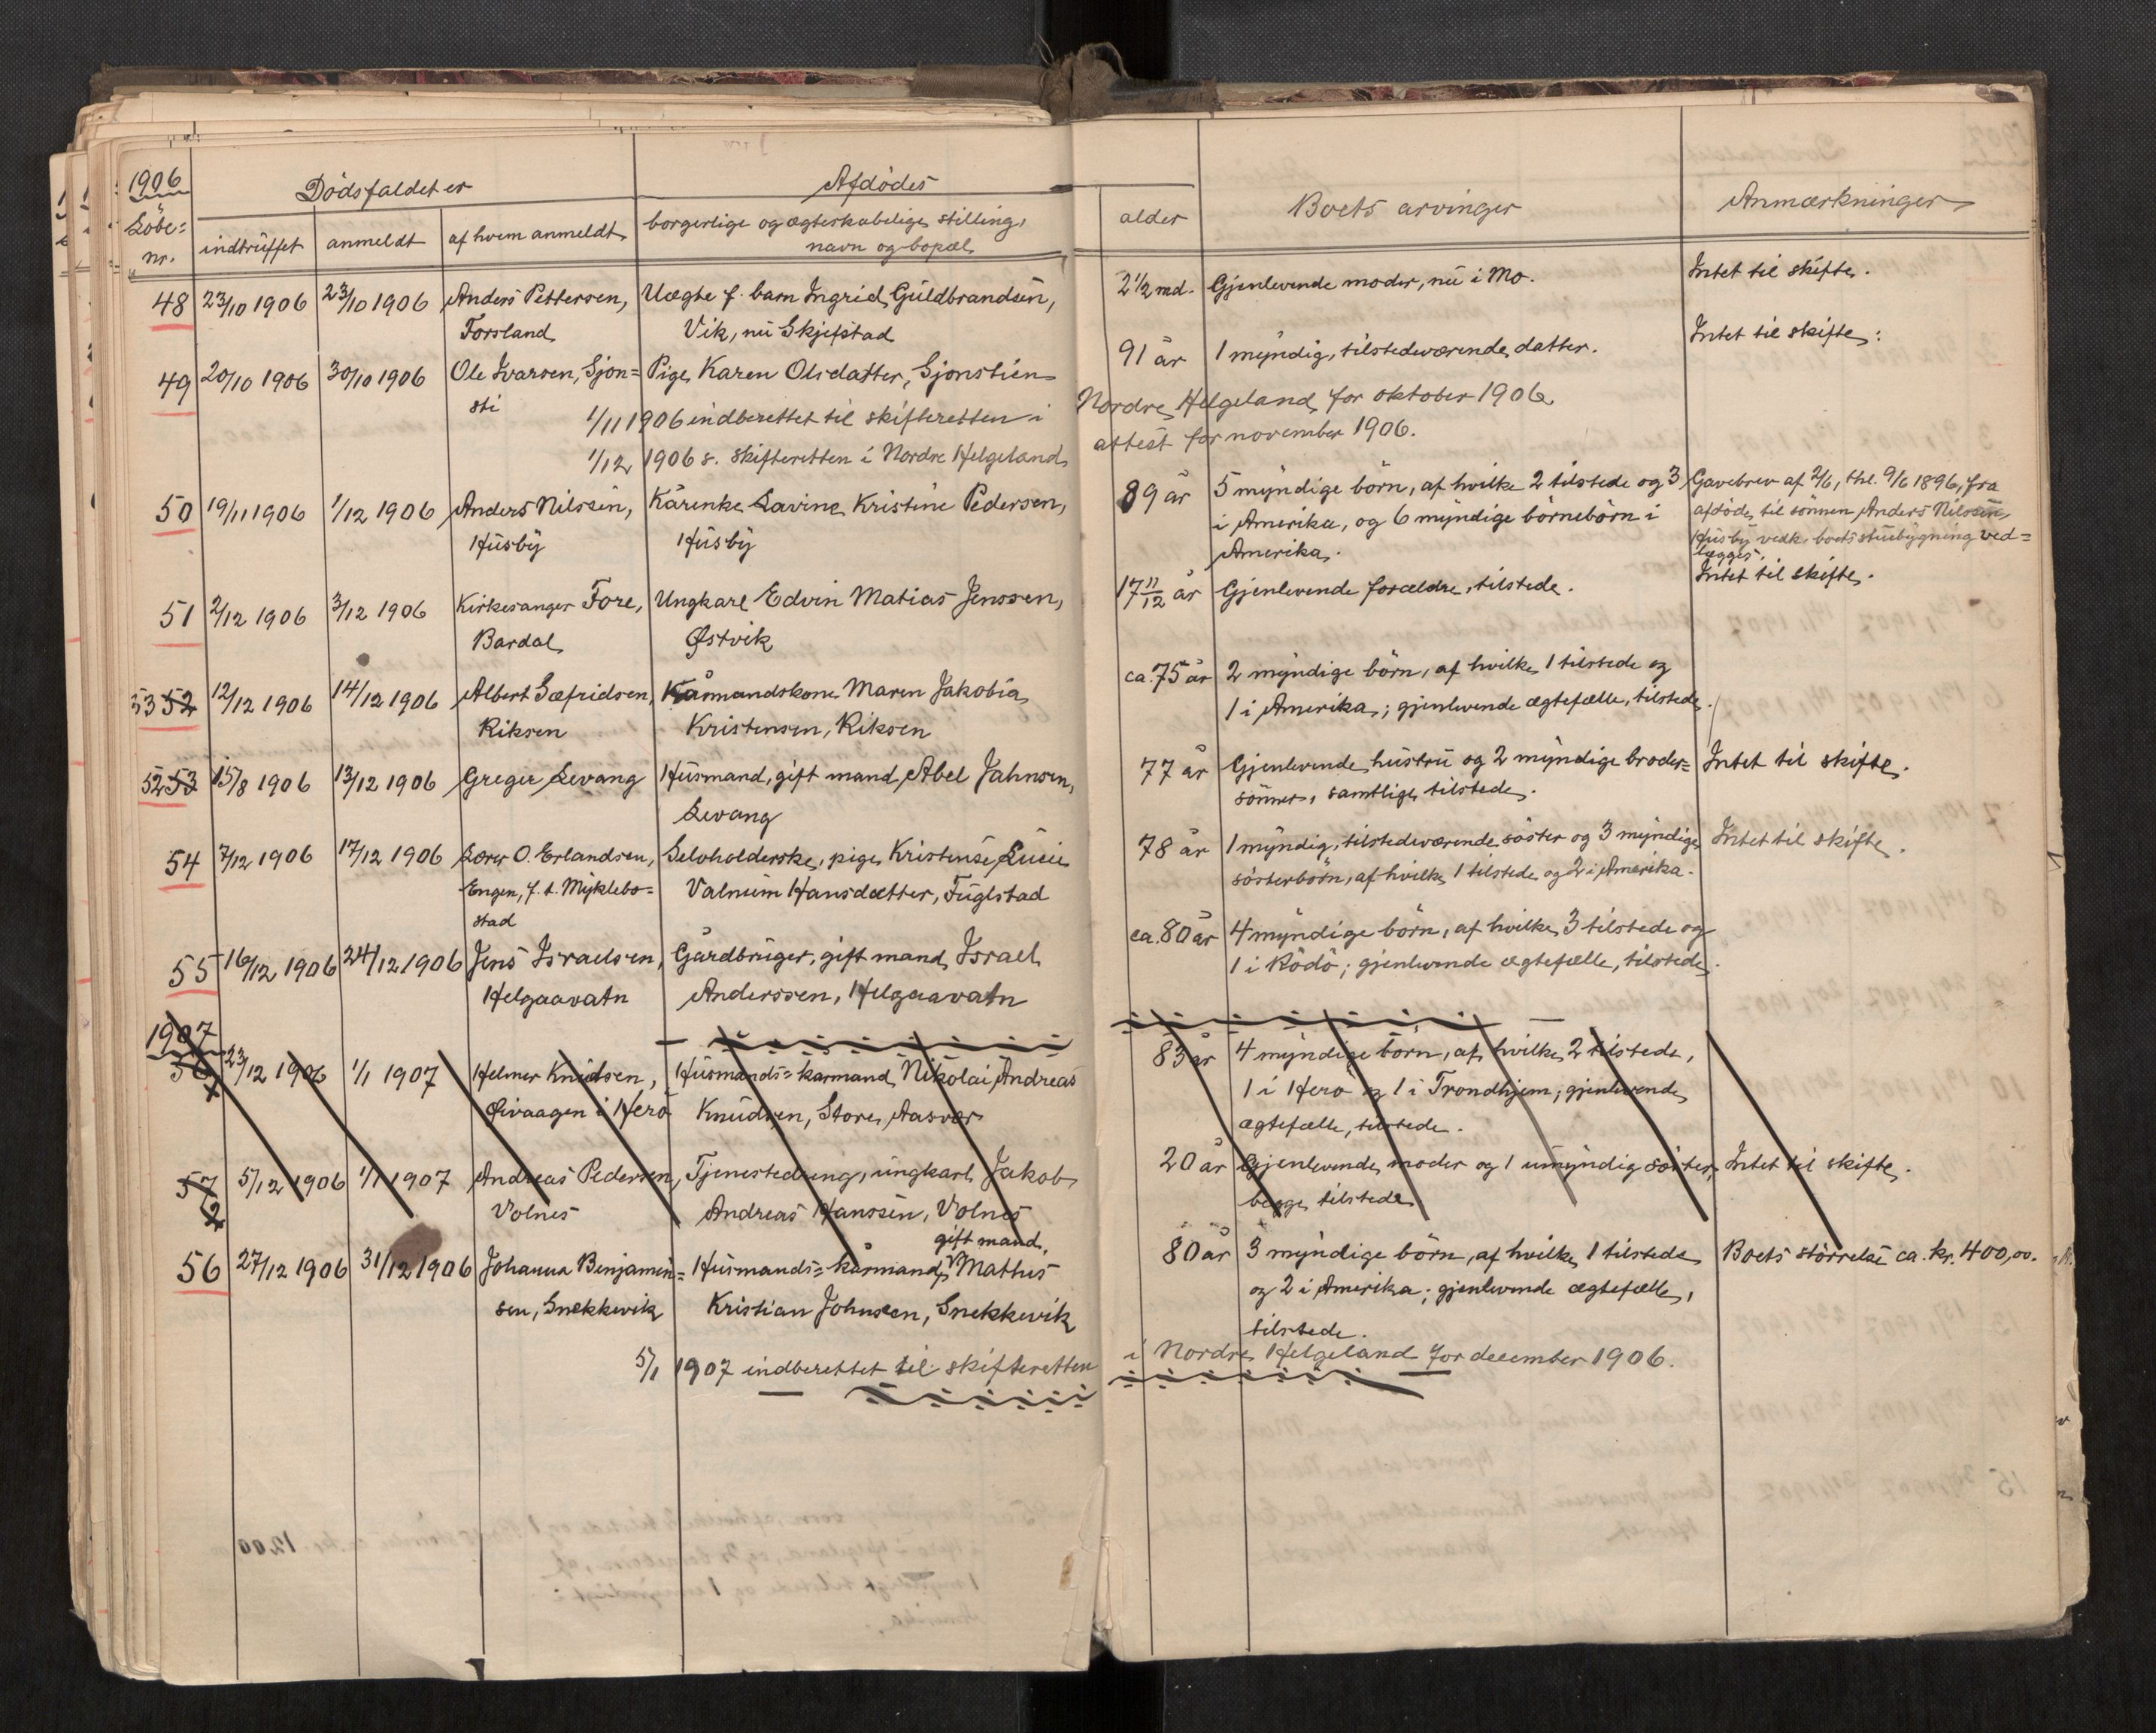 1906
Dödsfaldet er
Afdödes
alder
Boets arvinger
Anmærkninger
Löbe-
nr.
indtruffet
anmeldt
af hvem anmeldt
borgerlige og ægteskabelige stilling,
navn og bopæl
48 23/10 1906 23/10 1906 Anders Pettersen, Uægte f. barn Ingrid Guldbrandsen, 2 1/2 md. Gjenlevende moder, nu i Mo. Intet til skifte.
Forsland Vik, nu Skjefstad
49 20/10 1906 30/10 1906 Ole Ivarsen, Sjon= Pige Karen Olsdatter, Sjonstien 91 år 1 myndig, tilstedeværende datter. Intet til skifte.
sti
1/11 1906 indberettet til skifteretten i Nordre Helgeland for oktober 1906.
1/12 1906 s. skifteretten i Nordre Helgeland attest for november 1906.
50 19/11 1906 1/12 1906 Anders Nilssen, Karenke Lavine Kristine Pedersen, 89 år 5 myndige börn, af hvilke 2 tilstede og 3 Gavebrev af 2/6, thl. 9/6 1896, fra
Husby Husby i Amerika, og 6 myndige börnebörn i afdöde til sönnen Anders Nilssen,
Amerika. Husby vedk. boets stuebygning ved=
lægges.
51 2/12 1906 3/12 1906 Kirkesanger Fore, Ungkarl Edvin Matias Jenssen, 17 11/12 år Gjenlevende forældre, tilstede. Intet til skifte.
Bardal Østvik
53 52 12/12 1906 14/12 1906 Albert Sæfridsen, Kårmandskone Maren Jakobia ca. 75 år 2 myndige börn, af hvilke 1 tilstede og
Riksen Kristensen, Riksen 1 i Amerika; gjenlevende ægtefælle, tilstede.
52 53 15/8 1906 13/12 1906 Greger Levang Husmand, gift mand Abel Jahnsen, 77 år Gjenlevende hustru og 2 myndige broder= Intet til skifte.
Levang sönner, samtlige tilstede.
54 7/12 1906 17/12 1906 Lærer O. Erlandsen, Selvholderske, pige Kristense Lucie 78 år 1 myndig, tilstedeværende söster og 3 myndige Intet til skifte.
Engen, f. t. Myklebo= Valnum Hansdatter, Fuglstad sösterbörn, af hvilke 1 tilstede og 2 i Amerika.
stad
55 16/12 1906 24/12 1906 Jens Israelsen, Gårdbruger, gift mand Israel ca. 80 år 4 myndige börn, af hvilke 3 tilstede og
Helgaavatn Anderssen, Helgaavatn 1 i Rödö; gjenlevende ægtefælle, tilstede.
1907
56 23/12 1906 1/1 1907 Helmer Knudsen, Husmands= kårmand Nikolai Andreas 83 år 4 myndige börn, af hvilke 2 tilstede,
1 Øivaagen i Herö Knudsen, Store Aasvær 1 i Herö og 1 i Trondhjem; gjenlevende
ægtefælle, tilstede.
57 5/12 1906 1/1 1907 Andreas Pedersen, Tjenestedreng, ungkarl Jakob 20 år Gjenlevende moder og 1 umyndig söster, Intet til skifte.
2 Volnes Andreas Hanssen, Volnes begge tilstede
gift mand,
56 27/12 1906 31/12 1906 Johanna Benjamin= Husmands= kårmand, Mathus 80 år 3 myndige börn, af hvilke 1 tilstede Boets störrelse ca. kr. 400,00.
sen, Snekkevik Kristian Johnsen, Snekkevik og 2 i Amerika; gjenlevende ægtefælle,
tilstede.
5/1 1907 indberettet til skifteretten i Nordre Helgeland for december 1906.